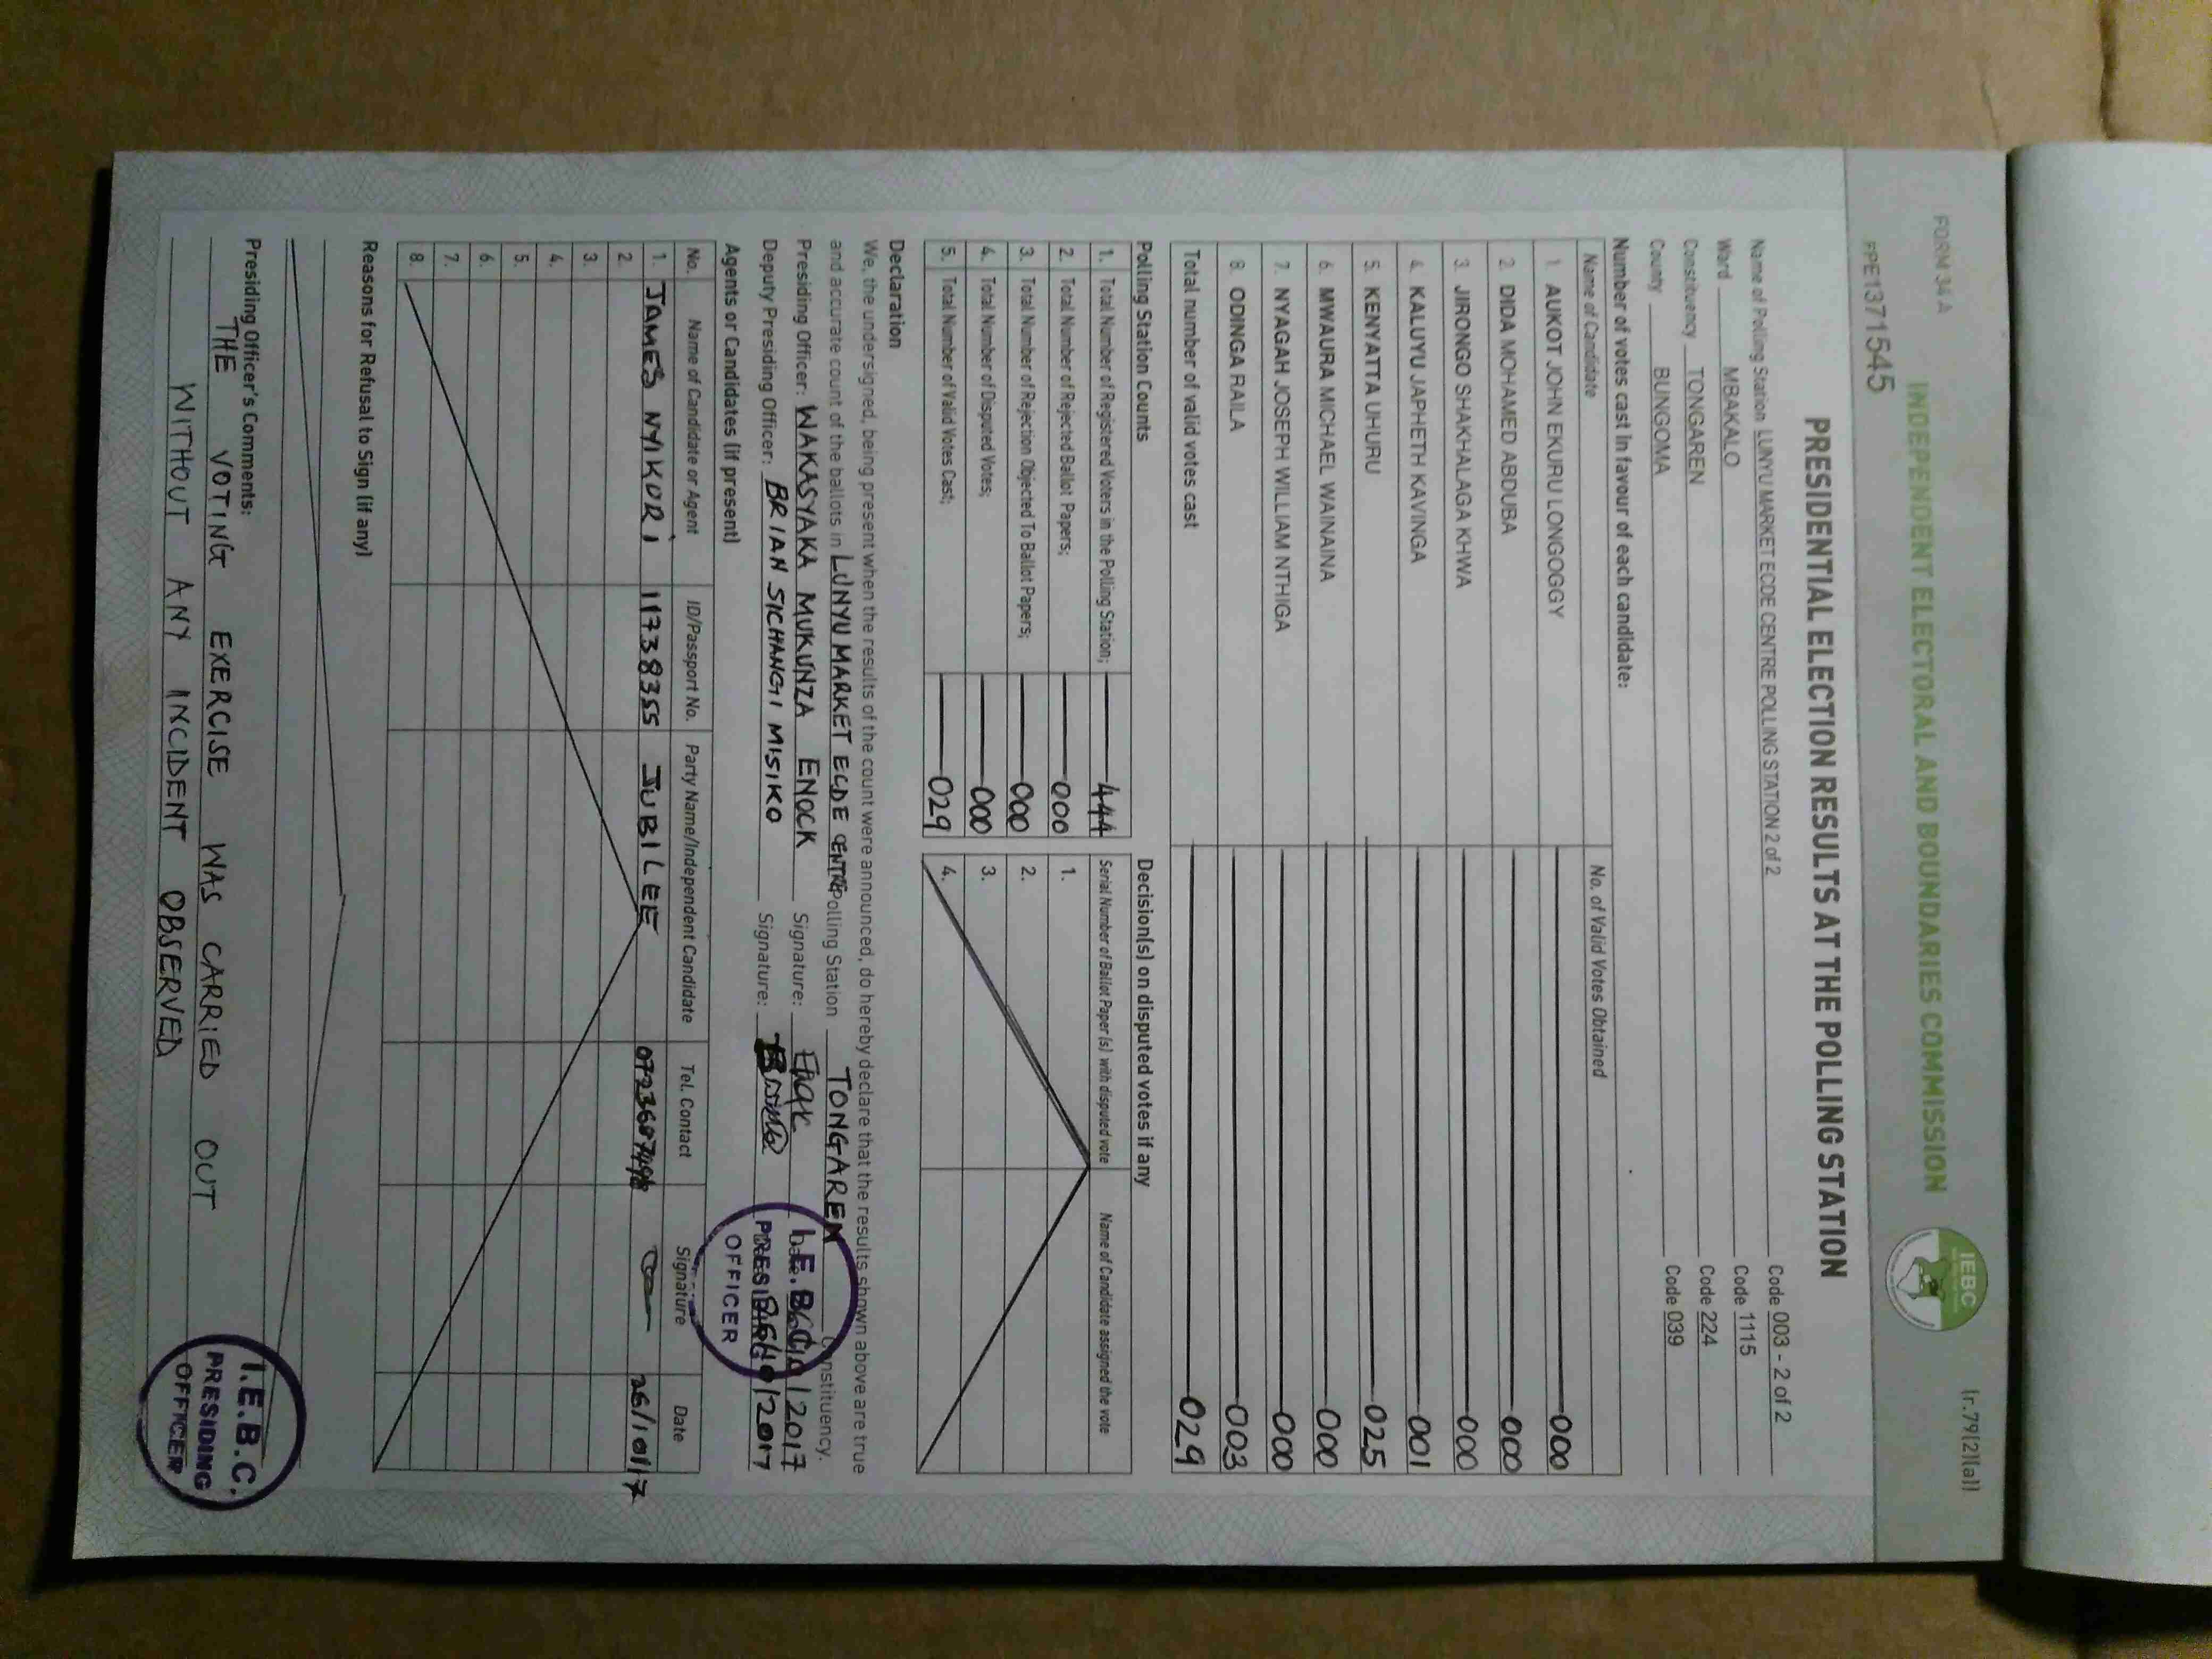 FORM 34 A
(r.79(2)(a))
INDEPENDENT ELECTORAL AND BOUNDARIES COMMISSION
IEBC
PPE1371545
PRESIDENTIAL ELECTION RESULTS AT THE POLLING STATION
Name of Polling Station LUNYU MARKET ECDE CENTRE POLLING STATION 2 of 2 Code 003 - 2 of 2
Ward MBAKALO Code 1115
Constituency TONGAREN Code 224
County BUNGOMA Code 039
Number of votes cast in favour of each candidate:
Name of Candidate No. of Valid Votes Obtained
1. AUKOT JOHN EKURU LONGOGGY 000
2. DIDA MOHAMED ABDUBA 000
3. JIRONGO SHAKHALAGA KHWA 000
4. KALUYU JAPHETH KAVINGA 001
5. KENYATTA UHURU 025
6. MWAURA MICHAEL WAINAINA 000
7. NYAGAH JOSEPH WILLIAM NTHIGA 000
8. ODINGA RAILA 003
Total number of valid votes cast 029
Polling Station Counts
1. Total Number of Registered Voters in the Polling Station; 444
2. Total Number of Rejected Ballot Papers; 000
3. Total Number of Rejection Objected To Ballot Papers; 000
4. Total Number of Disputed Votes; 000
5. Total Number of Valid Votes Cast; 029
Decision(s) on disputed votes if any
Serial Number of Ballot Paper (s) with disputed vote Name of Candidate assigned the vote
1.
2.
3.
4.
Declaration
We, the undersigned, being present when the results of the count were announced, do hereby declare that the results shown above are true
and accurate count of the ballots in LUNYU MARKET ECDE CENTRE Polling Station TONGAREN Constituency.
Presiding Officer: WAKASYAKA MUKUNZA ENOCK Signature: 26/10/2017
Deputy Presiding Officer: BRIAN SICHANGI MISIKO Signature: 26/10/2017
I.E.B.C.
PRESIDING
OFFICER
Agents or Candidates (if present)
No. Name of Candidate or Agent ID/Passport No. Party Name/Independent Candidate Tel. Contact Signature Date
1. JAMES NYIKURI 11738355 JUBILEE 26/10/17
2.
3.
4.
5.
6.
7.
8.
Reasons for Refusal to Sign (if any)
Presiding Officer's Comments:
THE VOTING EXERCISE WAS CARRIED OUT
WITHOUT ANY INCIDENT OBSERVED
I.E.B.C.
PRESIDING
OFFICER